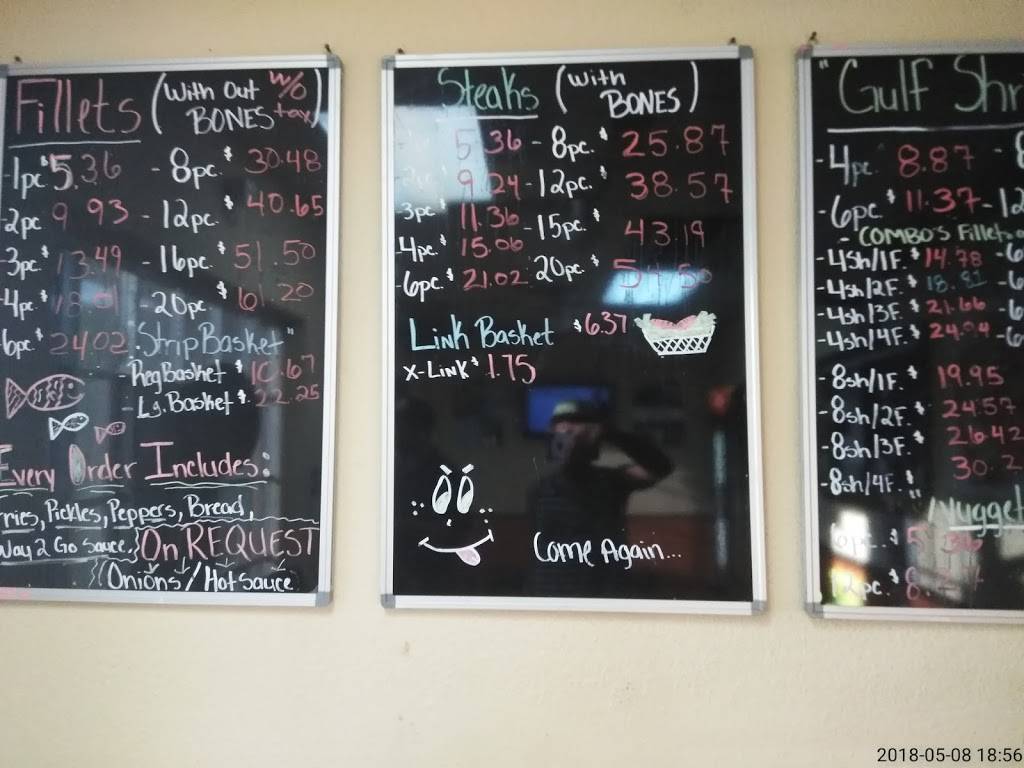 Fillets (With Out BONES w/o tax)
-1pc $5.36 - 8pc. $30.48
-2pc 9 93 - 12pc. $40.65
-3pc. $13.49 - 16pc. $51.50
-4pc. $18.01 - 20pc. $61.20
6pc. $24.02
"Strip Basket"
- Reg Basket $10.67
- Lg. Basket $. 22.25
Every Order Includes:
Pickles, Peppers, Bread,
Way 2 Go Sauce. On REQUEST
Onions / Hot Sauce
Steaks (With BONES)
5.36 - 8pc. $25.87
9.24 - 12pc. $38.57
-3pc $11.36 - 15pc. $43.19
-4pc. $15.06
-6pc. $21.02 20pc. $
Link Basket $6.37
X-Link $1.75
Come Again...
"Gulf
-4pc 8.87 -
-6pc. $11.37 -
- COMBO'S Fillets
-4sh/1F. $14.78 -6
-4sh/2F. $18.81 -6
-4sh/3F. $21.66 -6
-4sh/4F. $24.94 -6
-8sh/1F. $19.95
-8sh/2F. $24.57
-8sh/3F. $26.42
-8sh/4F. $30.2
12pc.
2018-05-08 18:56